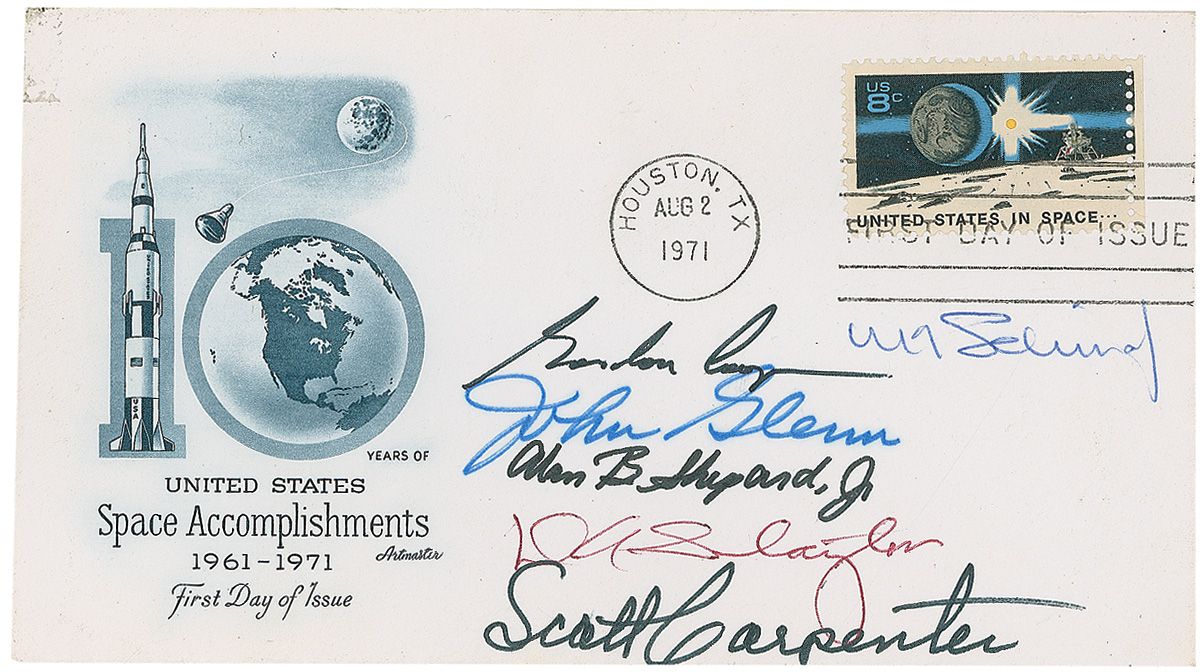 US
8c
UNITED STATES IN SPACE...
HOUSTON, TX
AUG 2
1971
FIRST DAY OF ISSUE
10
USA
YEARS OF
UNITED STATES
Space Accomplishments
1961-1971
Artmaster
First Day of Issue
W M Schirra
Gordon Cooper
John Glenn
Alan B. Shepard, Jr
D K Slayton
Scott Carpenter